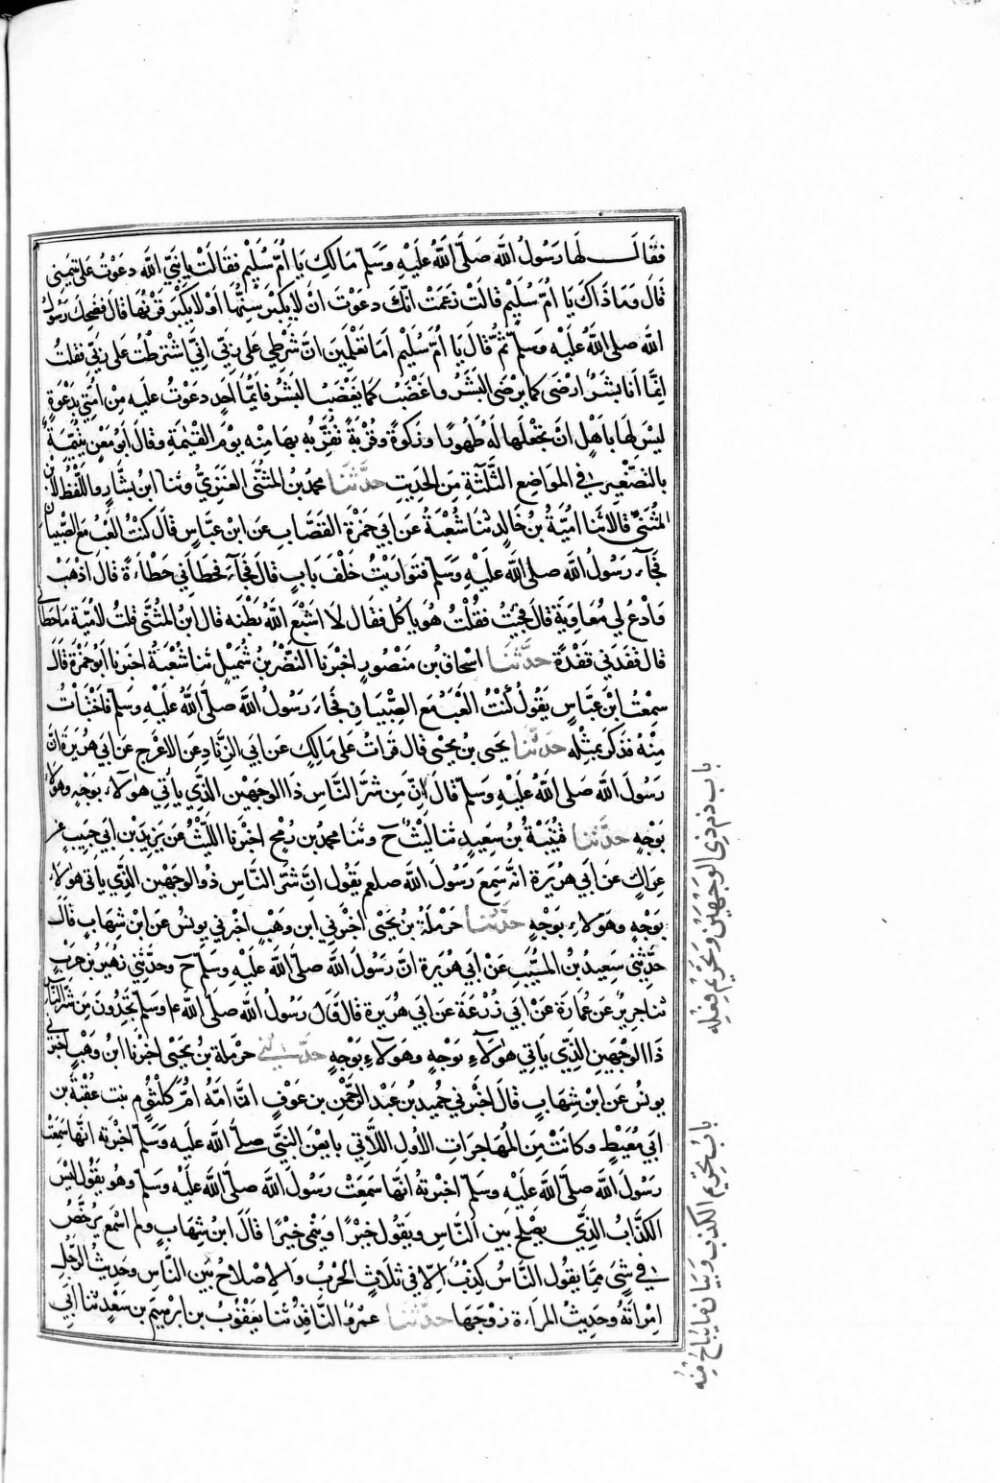 فقَالَ لَهَا رَسُولُ اللَّه صَلَّى اللَّهُ عَلَيْهِ وَسَلَّم مَالَكِ يَا أُمَّ سُلَيْمٍ فقَالَتْ يَا نَبِيَّ اللَّه دعَوْتُ عَلى يَتِيمَتِي
قالَ وَمَا ذَاكَ يَا أُمَّ سُلَيْمٍ قالَتْ زَعَمَتْ انَّكَ دعَوْتَ انْ لا يَكْبَرَ سِنُّهَا أَوْ لا يَكْبَرَ قَرْنُهَا قالَ فضَحِكَ رَسُولُ
اللَّه صلى اللَّهُ عَلَيْهِ وَسَلَّم ثُمَّ قالَ يَا أُمَّ سُلَيْمٍ امَا تَعْلَمِينَ انَّ شَرْطِي عَلى رَبِّي انِّي اشْتَرطْتُ عَلى رَبِّي فقلتُ
انَّمَا انَا بَشَرٌ ارْضَى كمَا يرْضَى البَشَرُ واغْضَبُ كمَا يَغْضَبُ البَشَرُ فايُّمَا أَحَدٍ دعَوْتُ عليه مِنْ امَّتِي بِدَعْوَةٍ
ليسَ لهَا باهْلٍ انْ تَجْعَلَهَا لَهُ طَهُورًا وزَكوةً وقُرْبةً تُقَرِّبُه بهَا مِنْه يَوْمَ القيٰمَةِ وقالَ ابُو مَعْنٍ يُتَيِّمَةٌ
بالتَّصْغِيرِ في المَوَاضِعِ الثَّلٰثَةِ مِنَ الحَدِيث حدَّثنَا محمدُ بنُ المُثَنَّى العَنَزِيُّ وثنا ابنُ بشَّارٍ واللَّفْظُ لابن
المُثنَى قالا ثنَا امَيَّةُ بنُ خَالِدٍ ثنَا شُعْبَةُ عَن ابي حَمْزَةَ القَصَّابِ عَنِ ابْنِ عبَّاسٍ قالَ كنْتُ العَبُ مَعَ الصِّبيان
فجَآءَ رَسُولُ اللَّه صلى اللَّه عَلَيْهِ وَسَلَّم فتَوَارَيْتُ خَلْفَ بَابٍ قالَ فجَآءَ فحَطَأَنِي حَطْأَةً قالَ اذْهَبْ
وَادْعُ لي مُعَاويَةَ قالَ فجِئْتُ فقُلْتُ هُوَ يَاكُل فقَال لا اشْبَعَ اللَّهُ بَطْنَه قالَ ابنُ المُثَنَّى قلتُ لامَيَّةَ مَا حَطَأَنِي
قالَ قفَدَنِي قَفْدَةً حدَّثنَا اسْحَاقُ بن مَنْصُورٍ اخبَرنَا النَّضْرُ بنُ شُمَيْلٍ ثنا شُعْبَةُ اخبَرنا ابُو حَمْزَةَ قالَ
سمِعْتُ ابْنَ عبَّاسٍ يَقُولُ كُنْتُ العَبُ مَعَ الصِّبْيَانِ فجَاءَ رَسُولُ اللَّهِ صَلَّى اللَّه عَلَيْهِ وَسَلَّم فَاخْتَبَأْتُ
مِنْهُ فذَكَرَ بمِثْلِه حَدَّثنَا يَحيى بنُ يحْيى قالَ قرَأتُ عَلى مَالِكٍ عَن ابي الزِّنَادِ عَنِ الاعْرَجِ عَن ابي هُرَيْرَةَ انَّ
رَسُولَ اللَّه صلى اللَّهُ عَلَيْهِ وَسَلَّم قالَ انَّ مِنْ شَرِّ النَّاسِ ذَا الوَجْهَيْنِ الَّذِي يَأتِي هٰؤلاءِ بوَجْهٍ وهَؤلاءِ
بوَجْهٍ حدَّثنا قُتَيْبَةُ بنُ سَعِيدٍ ثنا لَيْثٌ ح وثنا محمد بن رُمْحٍ اخبَرنا اللَّيْثُ عَنْ يَزِيدَ بْنِ ابي حَبِيبٍ عن
عِرَاكٍ عَن ابي هُرَيْرَةَ انَّه سَمِعَ رَسُولَ اللَّه صلعم يَقُولُ انَّ شَرَّ النَّاسِ ذُو الوَجْهَيْنِ الَّذِي يَأتي هٰؤلاءِ
بوَجْهٍ وهَؤلاءِ بوَجْهٍ حدَّثنا حَرْمَلَةُ بنُ يَحْيى اخْبَرنِي ابن وَهْبٍ اخبَرنِي يونُسُ عَنِ ابْنِ شِهَابٍ قالَ
حدَّثنِي سَعِيدُ بنُ المُسَيِّبِ عَن ابي هُرَيْرَةَ انَّ رَسُولَ اللَّه صَلَّى اللَّه عَلَيْهِ وَسَلَّم ح وحدَّثني زُهَيرُ بن حَربٍ
ثنا جرِيرٌ عَن عُمَارَةَ عَنْ ابي زُرْعَةَ عَن ابي هُرَيرَةَ قالَ قالَ رَسُولُ اللَّه صَلَّى اللَّه ع وسَلَّم تجدُونَ مِن شَرِّ النَّاسِ
ذَا الوَجْهَيْنِ الَّذِي يَاتِي هٰؤلاءِ بوَجْهٍ وهَؤلاءِ بوَجْهٍ حدَّثني حَرْملةُ بن يَحْيى اخبَرنا ابنُ وَهْبٍ اخبرني
يونُسُ عَنِ ابْنِ شِهَابٍ قالَ اخْبَرنِي حُمَيدُ بن عَبْدِ الرَّحمٰنِ بن عَوْفٍ انَّ امَّهُ امَّ كُلْثُومٍ بنت عُقْبةَ بن
ابي مُعَيْطٍ وكانَتْ مِنَ المُهَاجِرَاتِ الأُوَلِ اللَّاتِي بايَعْنَ النبِيَّ صلَّى اللَّه عَلَيْهِ وَسَلَّم اخْبَرَته انَّهَا سَمِعَتْ
رَسُولَ اللَّه صَلَّى اللَّه عَلَيْهِ وَسَلَّم اخْبَرَتْهُ انَّهَا سَمِعَتْ رَسُولَ اللَّه صَلَّى اللَّه عَلَيْهِ وَسَلَّم وهُو يَقُولُ ليْسَ
الكَذَّابُ الَّذِي يصْلِحُ بينَ النَّاسِ ويَقُولُ خيْرًا ويَنْمِي خيْرًا قالَ ابنُ شِهَابٍ ولم اسْمَع يُرَخَّصُ
في شَيءٍ مِمَّا يقولُ النَّاسُ كِذْبٌ الَّا في ثلَاثٍ الحَرْبُ وَالإصْلاحُ بَيْنَ النَّاسِ وحَدِيثُ الرَّجُلِ
امْرَاتَهُ وحَدِيثُ المَرأةِ زَوْجَهَا حدَّثنا عَمْرٌو النَّاقِدُ ثنا يَعْقُوبُ بن ابرٰهِيمَ بن سَعْدٍ ثنا ابي
باب ذم ذي الوَجْهَيْنِ وَتَحْرِيمِ فِعْلِه
بابُ تَحْرِيمِ الكذبِ وَبَيَان مَا يُبَاحُ مِنْهُ